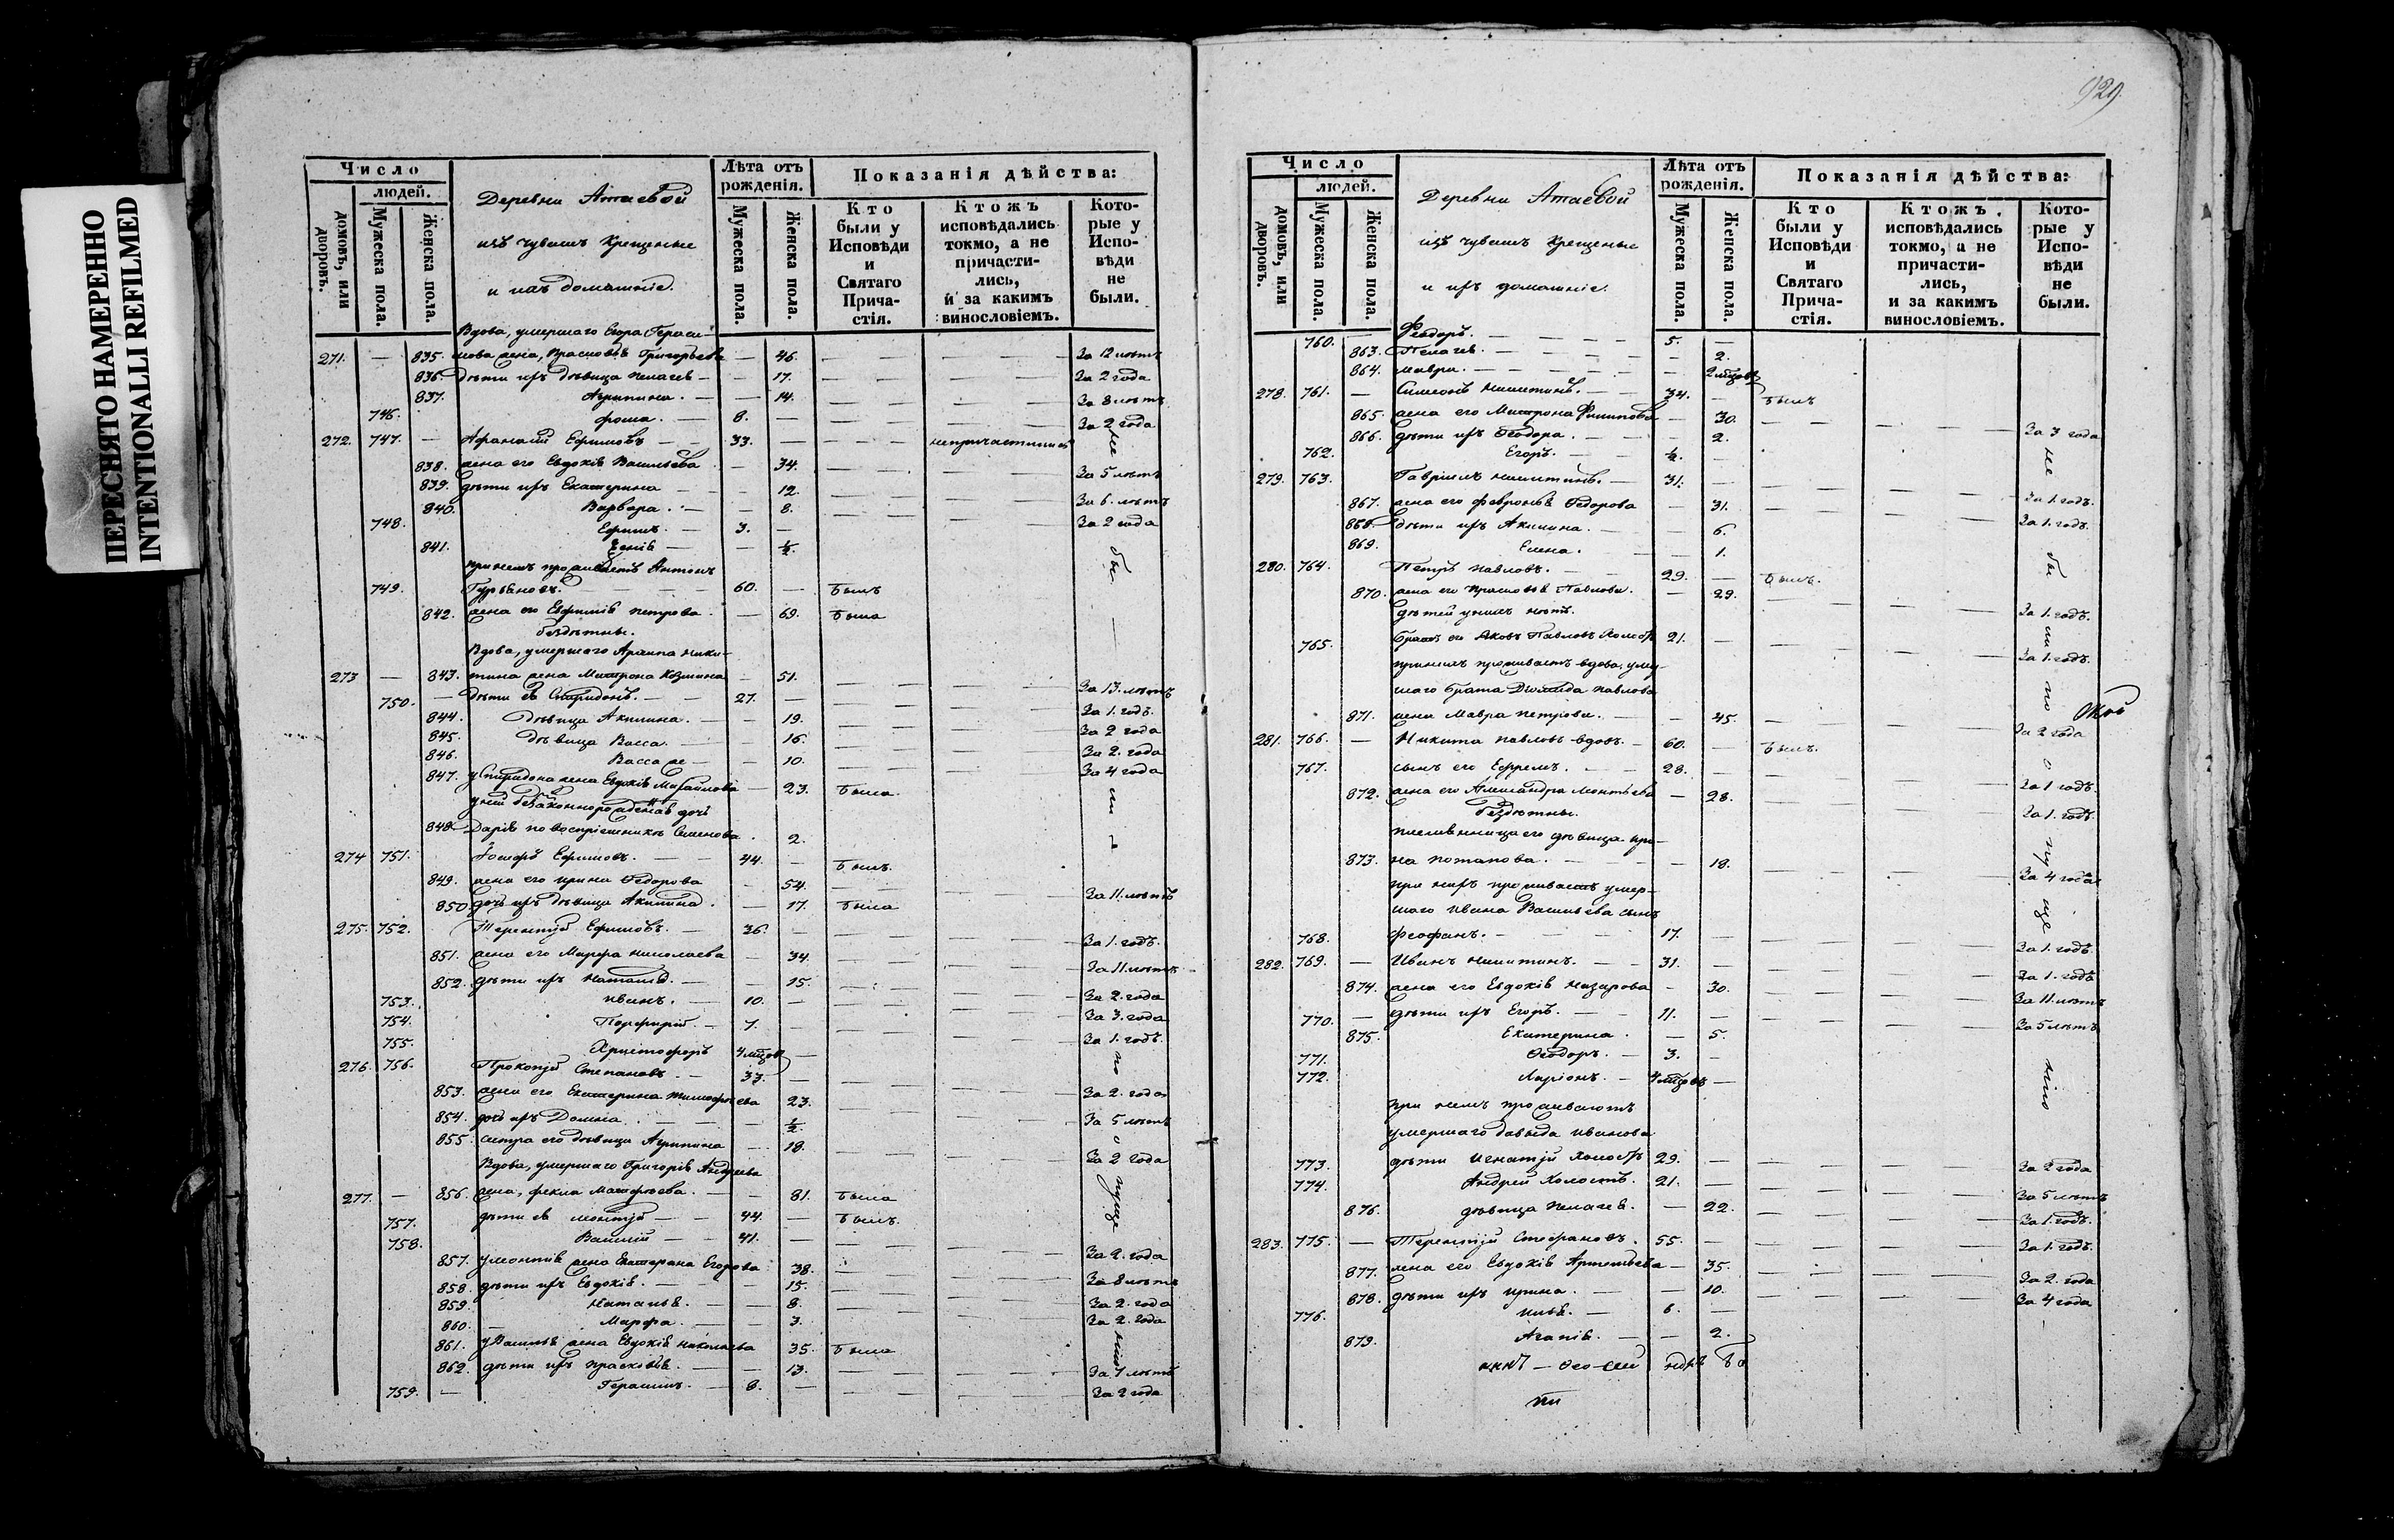 ПЕРЕСНЯТО НАМЕРЕННО
INTENTIONALLI REFILMED
Число
людей.
домовъ, или дворовъ.
Мужеска пола.
Женска пола.
Деревни Атаевой
изъ чувашъ крещеные
и ихъ домашніе.
Лѣта отъ рожденія.
Мужеска пола.
Женска пола.
Показанія дѣйства:
Кто были у Исповѣди и Святаго Прича-стія.
Ктожъ исповѣдались токмо, а не причасти-лись, и за какимъ винословіемъ.
Кото-рые у Испо-вѣди не были.
Вдова, умершаго Егора Гераси-
271. — 835. мова жена, Прасковья Григорьева — 46. — — За 12 лѣтъ
836. дѣти ихъ дѣвица Пелагея — — 17. — — За 2 года
837. Агрипина. — — 14. — — За 8 лѣтъ
746. Фома. — 8. — — За 2 года
272. 747. — Афанасій Ефимовъ — — 33. — — непричастился
838. жена его Евдокія Васильева — 34. — — За 5 лѣтъ
839. дѣти ихъ Екатерина — — 12. — — За 6. лѣтъ
840. Варвора. — — 8. — — За 2 года
748. Ефимъ. — 3. —
841. Ксенія — — ½.
при немъ проживаетъ Антонъ
749. Гурьяновъ. — — 60. — былъ
842. жена его Евфимія Петрова. — 69. была
бездѣтны.
Вдова, умершаго Архипа Ники-
273 — 843. тина жена Матрона Козмина — 51. — — За 13. лѣтъ
750. — дѣти ея Спиридонъ. — — 27. — — За 1. годъ.
844. дѣвица Акилина. — — 19. — — За 2 года
845. дѣвица Васса. — — 16. — — За 2. года
846. Васса же — — 10. — — За 4 года
847. у Спиридона жена Евдокія Михайлова — 23. была.
у ней беззаконнорожденная дочь
848. Дарія по восприемникѣ Семенова. 2.
274 751. Іосифъ Ефимовъ. — — 44. — былъ.
849. жена его Ирина Федорова — 54. — — За 11. лѣтъ
850. дочь ихъ дѣвица Акилина. — 17. была
275. 752. Терентій Ефимовъ. — 36. — — За 1. годъ.
851. жена его Марфа Николаева — 34. — — За 11 лѣтъ
852. дѣти ихъ Наталія. — — 15. — — За 2. года
753. Иванъ. — 10. — — За 3. года
754. Порфирій. — 7. — — За 1. годъ.
755. Христофоръ 4 мѣсцов —
276. 756. Прокопій Степановъ. — 33. — — За 2. года
853. жена его Екатерина Тимофѣева 23. — — За 5 лѣтъ
854. дочь ихъ Домна. — — ½.
855. сестра его дѣвица Агрипина — 18. — — За 2 года
Вдова, умершаго Григорія Андреева
277. — 856. жена, Фекла Матфѣева. — — 81. была
757. дѣти ея Леонтій — — 44. — былъ.
758. Василій — — 41. — — За 2. года
857. у Леонтія жена Екатерина Егорова 38. — — За 8 лѣтъ
858. дѣти ихъ Евдокія. — — 15. — — За 2. года
859. Наталья. — — 8. — — За 2. года
860. Марфа. — — 3.
861. у Василья жена Евдокія Николаева 35. была
862. дѣти ихъ Прасковья. — — 13. — — За 7 лѣтъ
759. — Герасимъ. — 8. — — За 2 года
929.
Число
людей.
домовъ, или дворовъ.
Мужеска пола.
Женска пола.
Деревни Атаевой
изъ чувашъ крещеные
и ихъ домашніе.
Лѣта отъ рожденія.
Мужеска пола.
Женска пола.
Показанія дѣйства:
Кто были у Исповѣди и Святаго Прича-стія.
Ктожъ исповѣдались токмо, а не причасти-лись, и за какимъ винословіемъ.
Кото-рые у Испо-вѣди не были.
760. — Феодоръ. — — 5. —
863. Пелагея. — — 2.
864. Мавра. — — 2 мѣсцов
278. 761. — Симеонъ Никитинъ. — 34. — былъ
865. жена его Матрона Филипова — 30. — — За 3 года
866. дѣти ихъ Феодора. — — 2.
762. Егоръ. — — ½. —
279. 763. Гавріилъ Никитинъ. — 31. — — За 1. годъ.
867. жена его Февронья Федорова — 31. — — За 1. годъ.
868. дѣти ихъ Акилина. — — 6.
869. Елена. — 1.
280. 764. Петръ Павловъ. — — 29. — былъ.
870. жена его Прасковья Павлова. — 29. — — За 1. годъ.
дѣтей у нихъ нѣтъ.
765. братъ его Яковъ Павловъ холостъ 21. — — За 1. годъ.
при нихъ проживаетъ вдова, умер-
шаго брата Діомида Павлова
871. жена Мавра Петрова. — — 45. — — За 2 года
281. 766. — Никита Павловъ вдовъ. — 60. — былъ.
767. сынъ его Ефремъ. — — 28. — — За 1 годъ.
872. жена его Александра Леонтьева — 28. — — За 1. годъ.
бездѣтны.
племянница его дѣвица Ири-
873. на Потапова. — — 18. — — За 4 года
при нихъ проживаетъ умер-
шаго Ивана Васильева сынъ
768. Феофанъ. — — 17. — — За 1. годъ.
282. 769. — Иванъ Никитинъ. — — 31. — — За 1. годъ
874. жена его Евдокія Назарова — 30. — — За 11. лѣтъ
770. — дѣти ихъ Егоръ. — — 11. — — За 5 лѣтъ
875. Екатерина. — 5.
771. Феодоръ. — 3. —
772. Ларіонъ. — 4 мѣсцовъ —
при немъ проживаютъ
умершаго Давыда Иванова
773. дѣти Игнатій холостъ 29. — — За 2 года
774. Андрей холостъ. 21. — — За 5 лѣтъ
876. дѣвица Пелагея. — 22. — — За 1. годъ.
283. 775. — Терентій Стефановъ. 55. — — За 1. годъ.
877. жена его Евдокія Артемьева — 35. — — За 2. года
878. дѣти ихъ Ирина. — — 10. — — За 4 года
776. Илья. — 6. —
879. Агапія. — — 2.